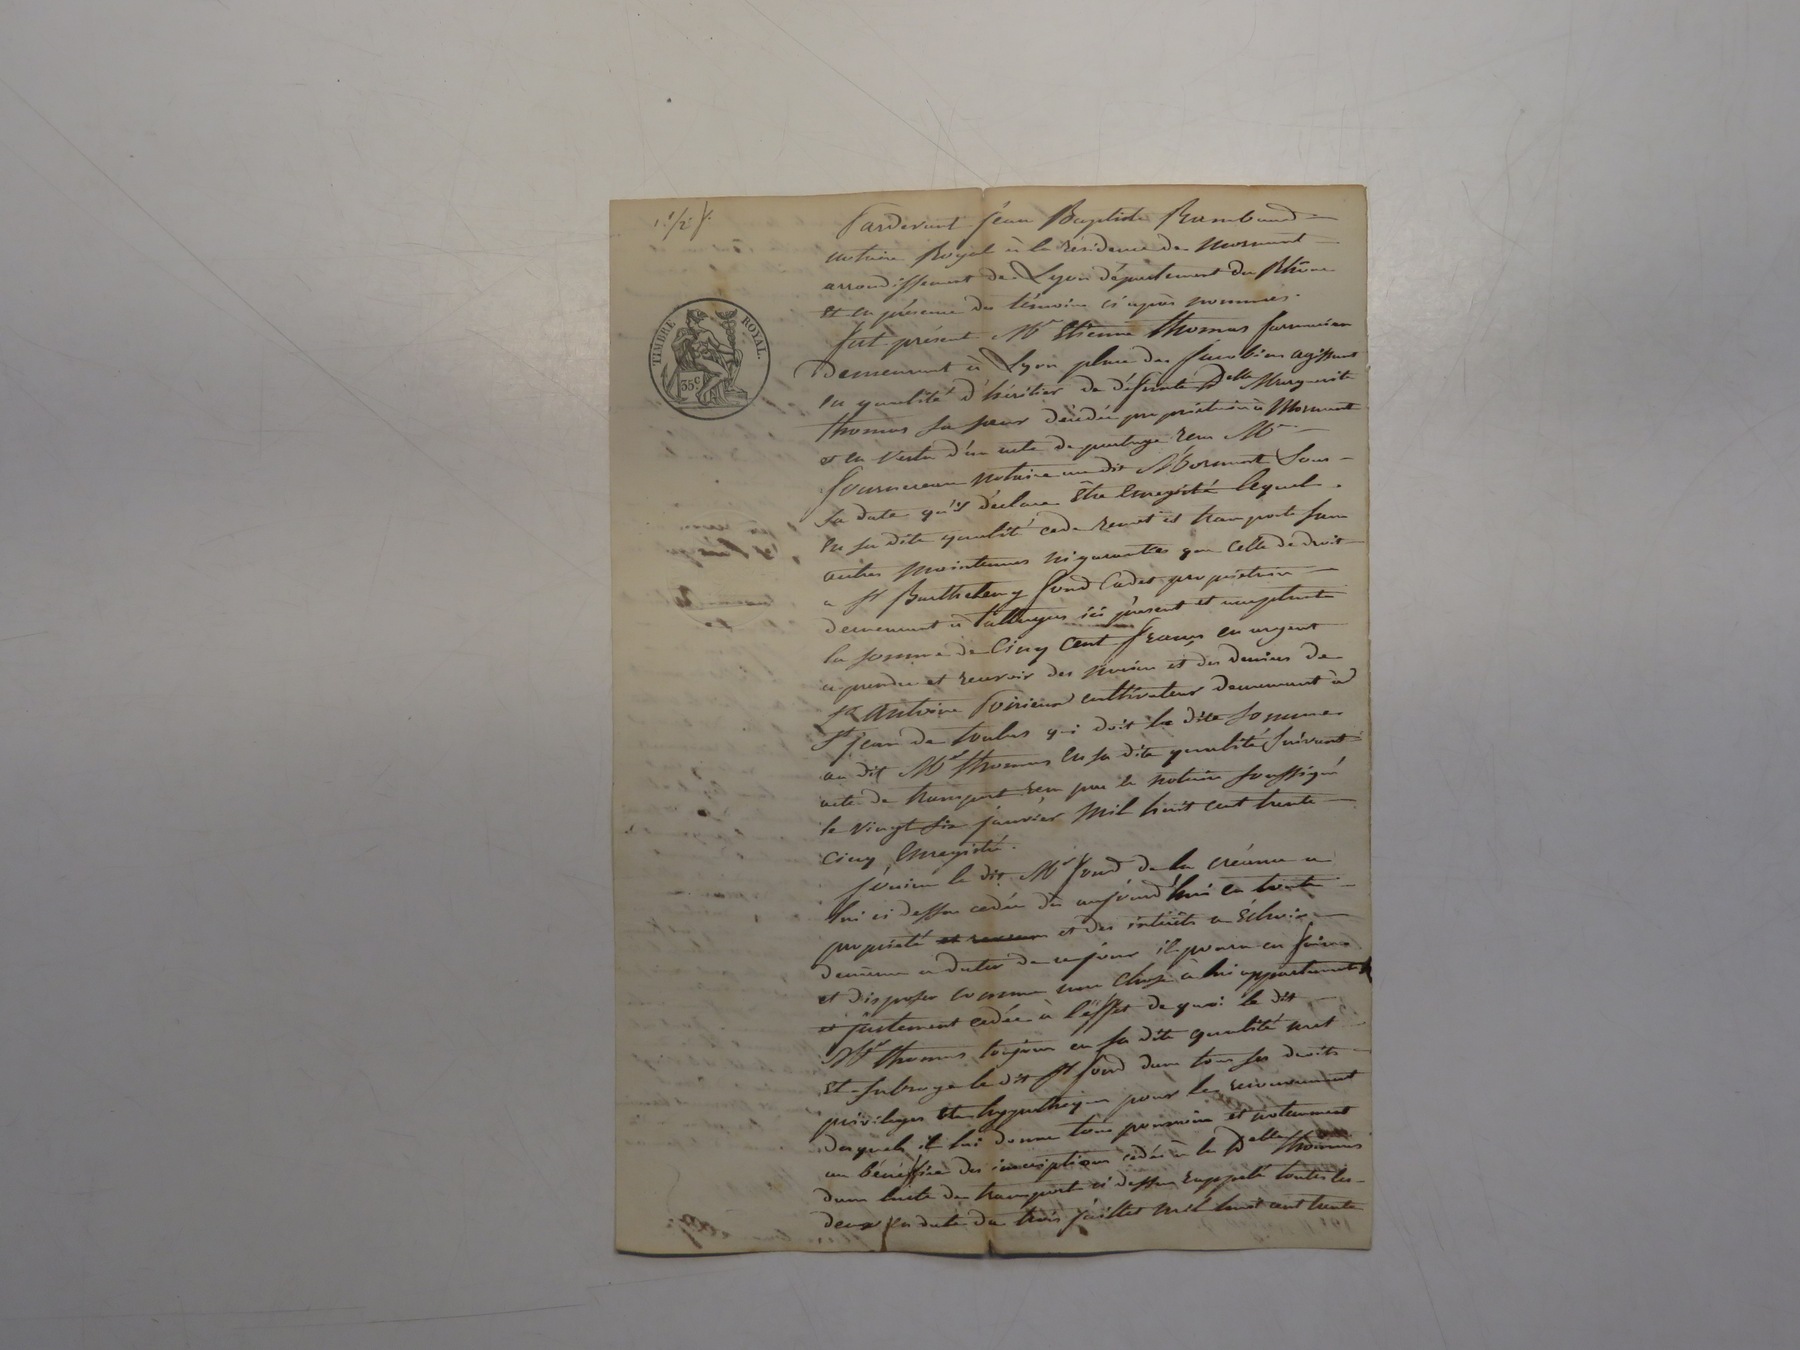 TIMBRE ROYAL.
35 c
Pardevant Jean Baptiste Rambaud
notaire Royal à la résidence de Mornant
arrondissement de Lyon département du Rhône
et en présence des témoins ci après nommés.
fut présent Mr Etienne Thomas
demeurant à Lyon place des Jacobins agissant
en qualité d'héritier de défunte Delle Marguerite
Thomas sa sœur décédée propriétaire à Mornant
et en vertu d'un acte de partage reçu Me
notaire au dit Mornant sous
sa date qu'il déclare être enregistré lequel
en sa dite qualité cede remet et transporte sans
autres maintenues ni garanties que celle de droit
a Sr Barthelemy fond Cadet propriétaire
demeurant à ici présent et acceptant
la somme de Cinq cent francs en argent
a prendre et recevoir des mains et des deniers de
Sr Antoine cultivateur demeurant à
St jean de toulas qui doit la dite somme
au dit Mr Thomas en sa dite qualité suivant
acte de transport reçu par le notaire soussigné
le vingt six janvier mil huit cent trente
cinq enregistré.
Jouira le dit Mr fond de la créance a
lui ci dessus cedée dès aujourd'hui en toute
propriété et des intérêts a échoir
a dater de ce jour il pourra en jouir
et disposer comme une chose à lui appartenant
et justement cedée à l'effet de quoi le dit
Mr Thomas toujours en sa dite qualité met
et subroge le dit Sr fond dans tous ses droits
privileges et hypotheques pour le recouvrement
desquels il lui donne tous pouvoirs et notamment
au bénéfice des inscriptions cedées à la Delle Thomas
dans l'acte de transport ci dessus rappelé toutes les
deux en date du trois juillet mil huit cent trente